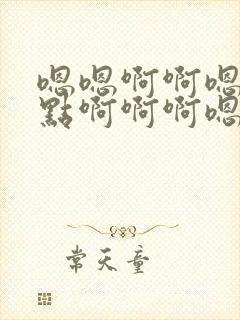 嗯嗯啊啊嗯
點啊啊啊嗯
常天童